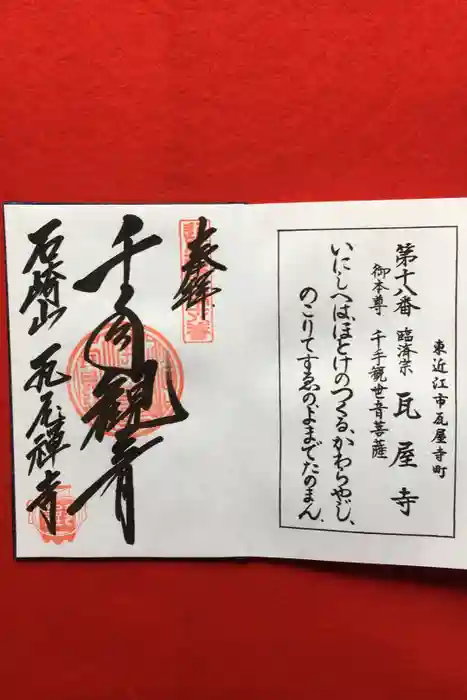 東近江市瓦屋寺町
第十八番 臨済宗 瓦屋寺
御本尊 千手観世音菩薩
いにしへは、ほとけのつくる、かわらやじ、
のこりてすゑの、よまでたのまん。
奉拝
千手観音
石崎山 瓦屋禅寺